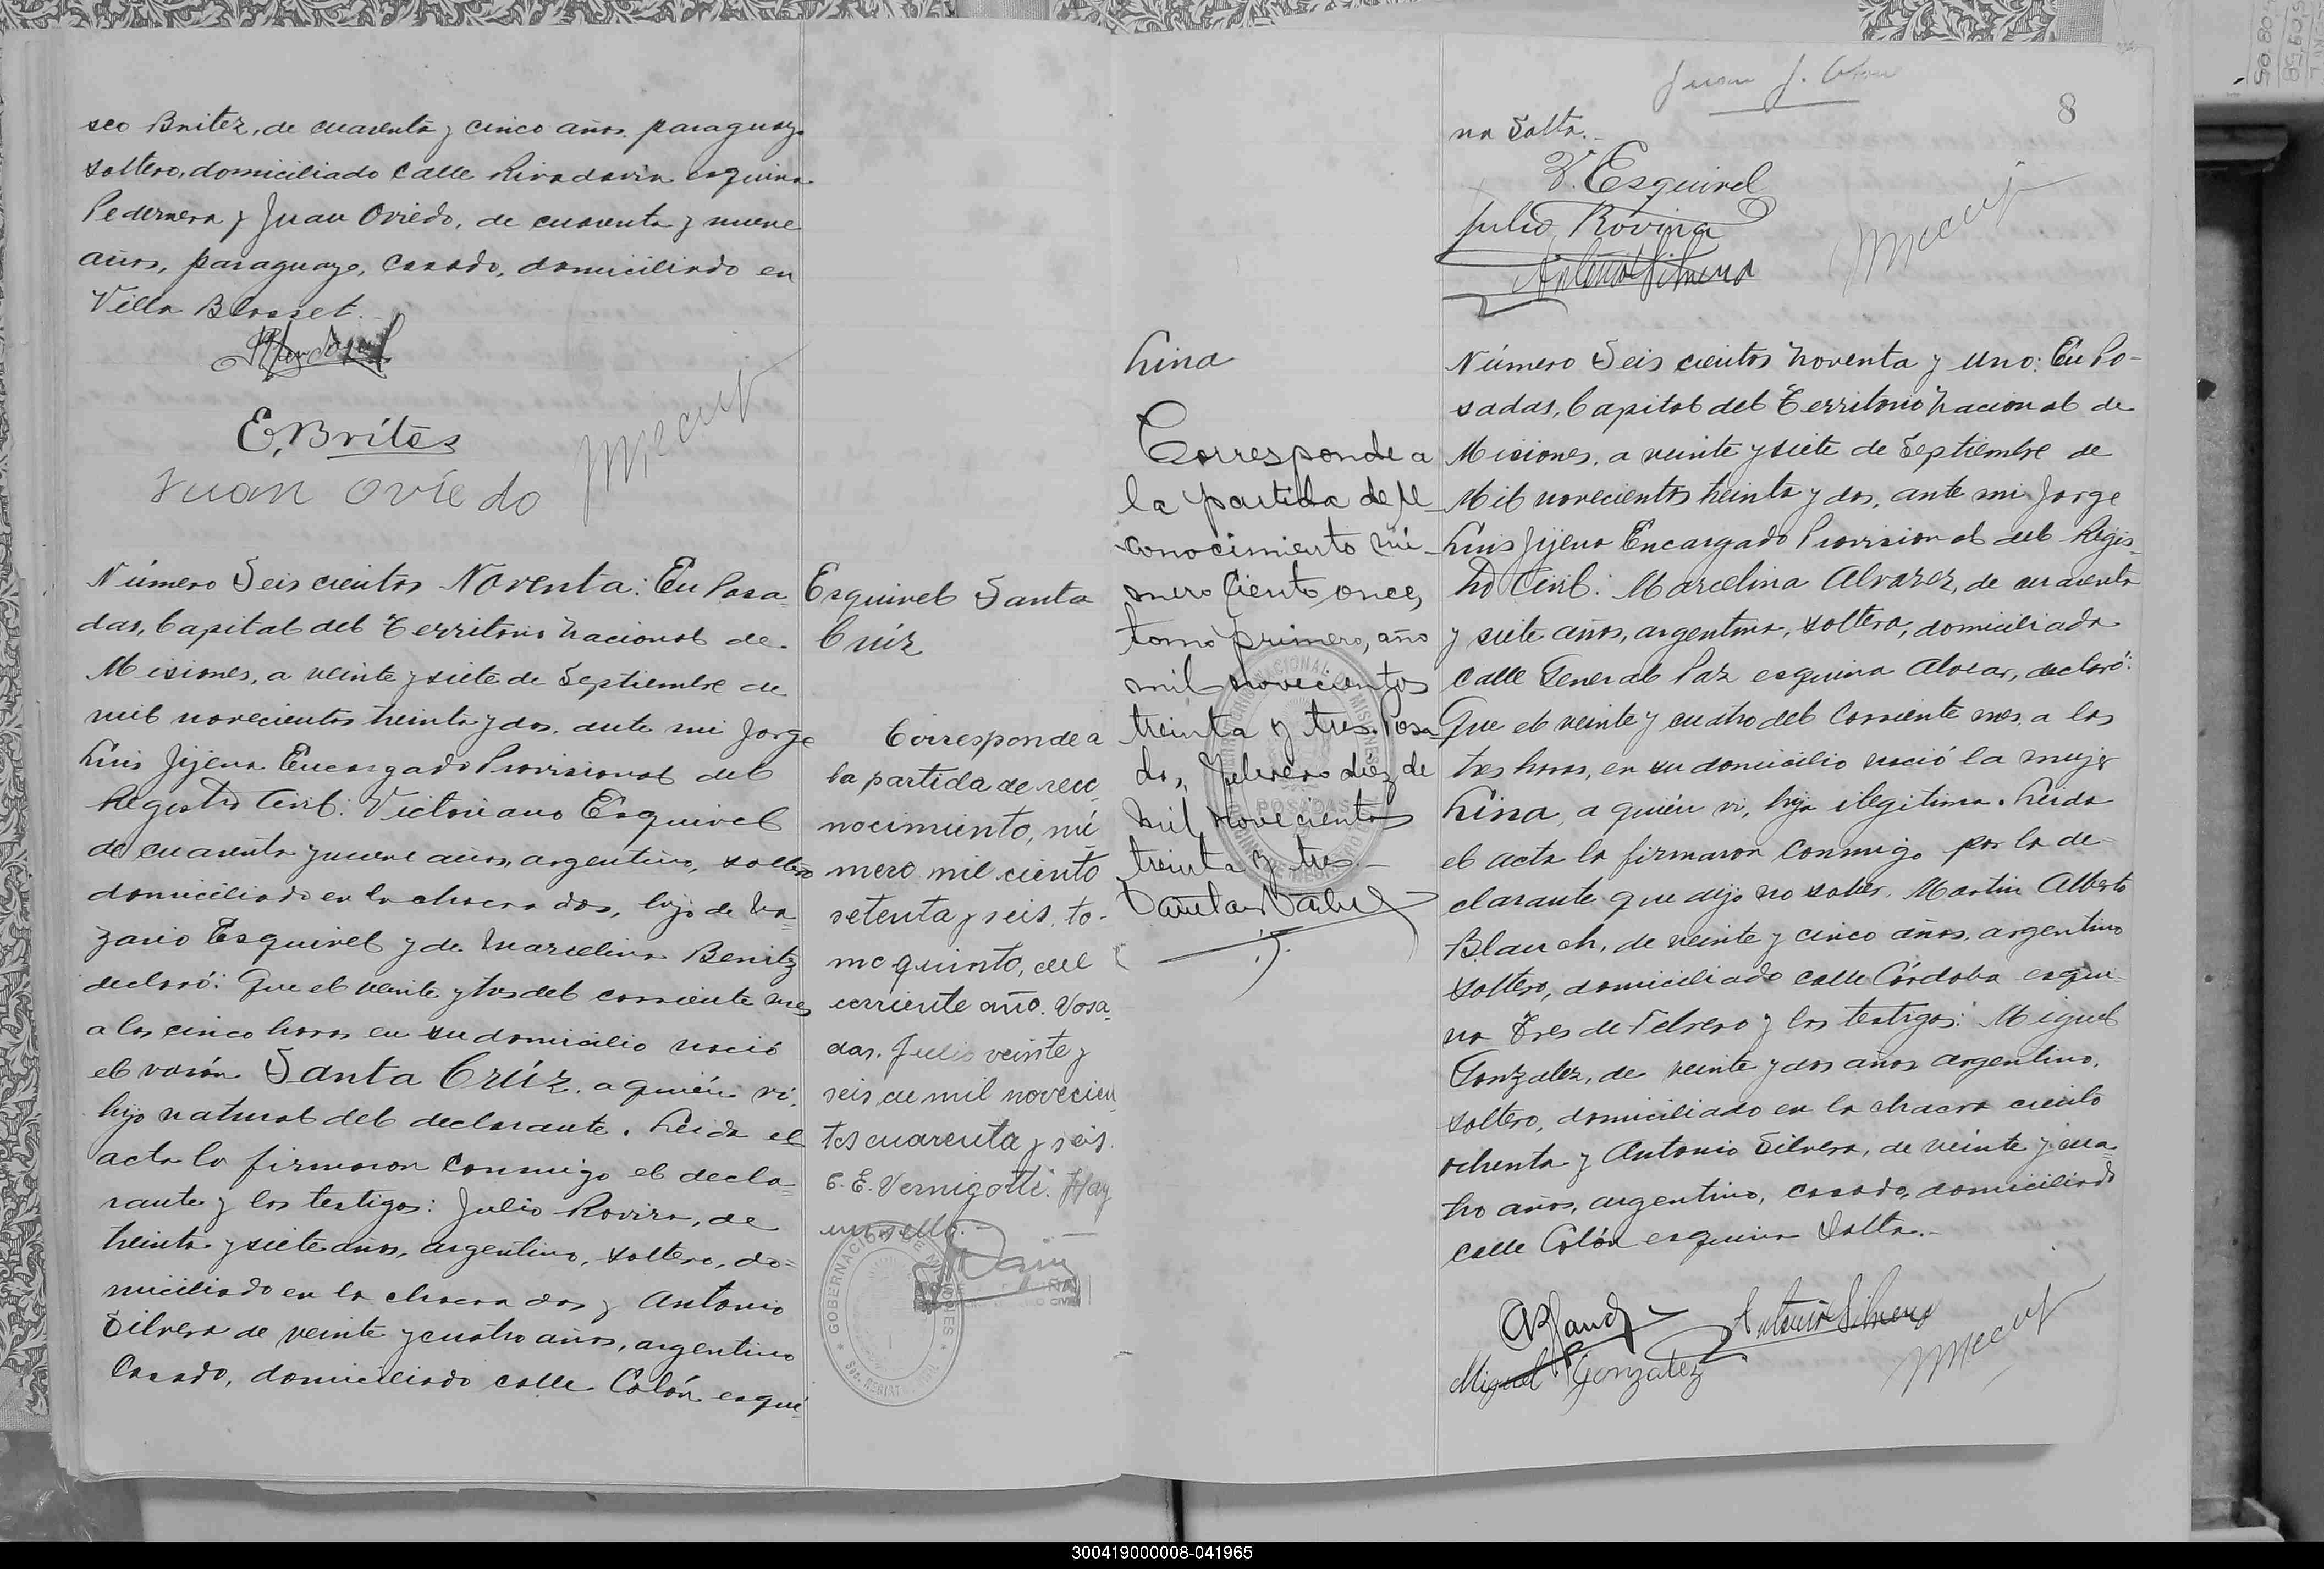 sco Britez, de cuarenta y cinco años, paraguayo
soltero, domiciliado calle Rivadavia esquina
Pedernera y Juan Oviedo, de cuarenta y nueve
años, paraguayo, casado, domiciliado en
Villa Blosset.
E. Brites
Juan Oviedo
Número Seiscientos Noventa: En Posa-
das, Capital del Territorio Nacional de
Misiones, a veinte y siete de Septiembre de
mil novecientos treinta y dos, ante mi Jorge
Luis Jijena Encargado Provisional del
Registro Civil: Victoriano Esquivel
de cuarenta y nueve años, argentino, soltero
domiciliado en la chacra dos, hijo de Na-
zario Esquivel y de Marcelina Benitz
declaró: Que el veinte y tres del corriente mes
a las cinco horas en su domicilio nació
el varón Santa Crúz, a quién vi,
hijo natural del declarante. Leida el
acta la firmaron conmigo el decla-
rante y los testigos: Julio Rovira, de
treinta y siete años, argentino, soltero, do-
miciliado en la chacra dos y Antonio
Silvera de veinte y cuatro años, argentino
casado, domiciliado calle Colón esqui-
Esquivel Santa
Crúz
Corresponde a
la partida de reco-
nocimiento, nú-
mero mil ciento
setenta y seis, to-
mo quinto, del
corriente año. Posa-
das, Julio veinte y
seis de mil novecien
tos cuarenta y seis.
C. E. Vernigotti. Hay
un sello.
GOBERNACION DE MISIONES
Lina
Corresponde a
la partida de re-
conocimiento nú-
mero ciento once,
tomo primero, año
mil novecientos
treinta y tres. Posa-
das, febrero diez de
mil novecientos
treinta y tres.-
POSADAS
8
na Salta.-
V. Esquivel
Julio Rovira
Antonio Silvera
Número Seiscientos Noventa y uno: En Po-
sadas, Capital del Territorio Nacional de
Misiones, a veinte y siete de Septiembre de
Mil novecientos treinta y dos, ante mi Jorge
Luis Jijena Encargado Provisional del Regis-
tro Civil: Marcelina Alvarez, de cuarenta
y siete años, argentina, soltera, domiciliada
calle General Paz esquina Alvear, declaró:
Que el veinte y cuatro del corriente mes a las
tres horas, en su domicilio nació la mujer
Lina, a quién vi, hija ilegitima. Leida
el acta la firmaron conmigo por la de-
clarante que dijo no saber, Martin Alberto
Blauch, de veinte y cinco años, argentino
soltero, domiciliado calle Córdoba esqui-
na Tres de Febrero y los testigos: Miguel
Gonzalez, de veinte y dos años argentino,
soltero, domiciliado en la chacra ciento
ochenta y Antonio Silvera, de veinte y cua-
tro años, argentino, casado, domiciliado
calle Colón esquina Salta.-
Antonio Silvera
Miguel Gonzalez
300419000008-041965